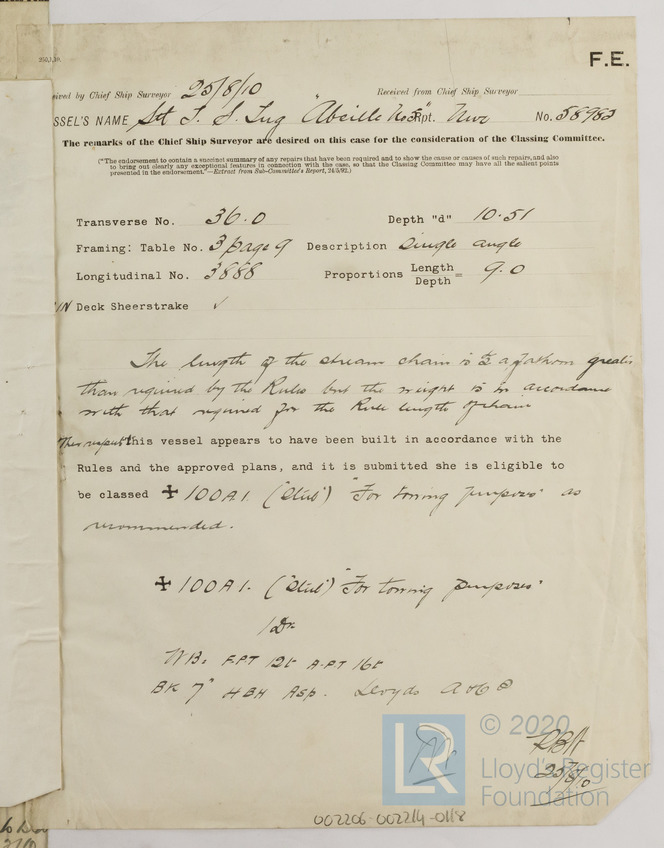 250,1,10.
F.E.
ived by Chief Ship Surveyor 25/8/10 Received from Chief Ship Surveyor
SSEL'S NAME St T. S. Tug "Abeille No 3" Rpt. Nwc No. 58983
The remarks of the Chief Ship Surveyor are desired on this case for the consideration of the Classing Committee.
("The endorsement to contain a succinct summary of any repairs that have been required and to show the cause or causes of such repairs, and also
to bring out clearly any exceptional features in connection with the case, so that the Classing Committee may have all the salient points
presented in the endorsement."—Extract from Sub-Committee's Report, 24/5/92.)
Transverse No. 36.0 Depth "d" 10.51
Framing: Table No. 3 page 9 Description Single angle
Longitudinal No. 3888 Proportions Length/Depth = 9.0
Deck Sheerstrake ✓
The length of the stream chain is ½ a fathom greater
than required by the Rules but the weight is in accordance
with that required for the Rule length of chain
this vessel appears to have been built in accordance with the
Rules and the approved plans, and it is submitted she is eligible to
be classed ✠ 100A1. (Steel) "For towing purposes" as
recommended.
✠ 100A1. (Steel) "For towing purposes"
1 Dk
WB: FPT 12t APT 16t
BK 7" 4BH Asp. Lloyds A & CP
RBH
25/8/10
© 2020
LR
Lloyd's Register
Foundation
002206-002214-0118